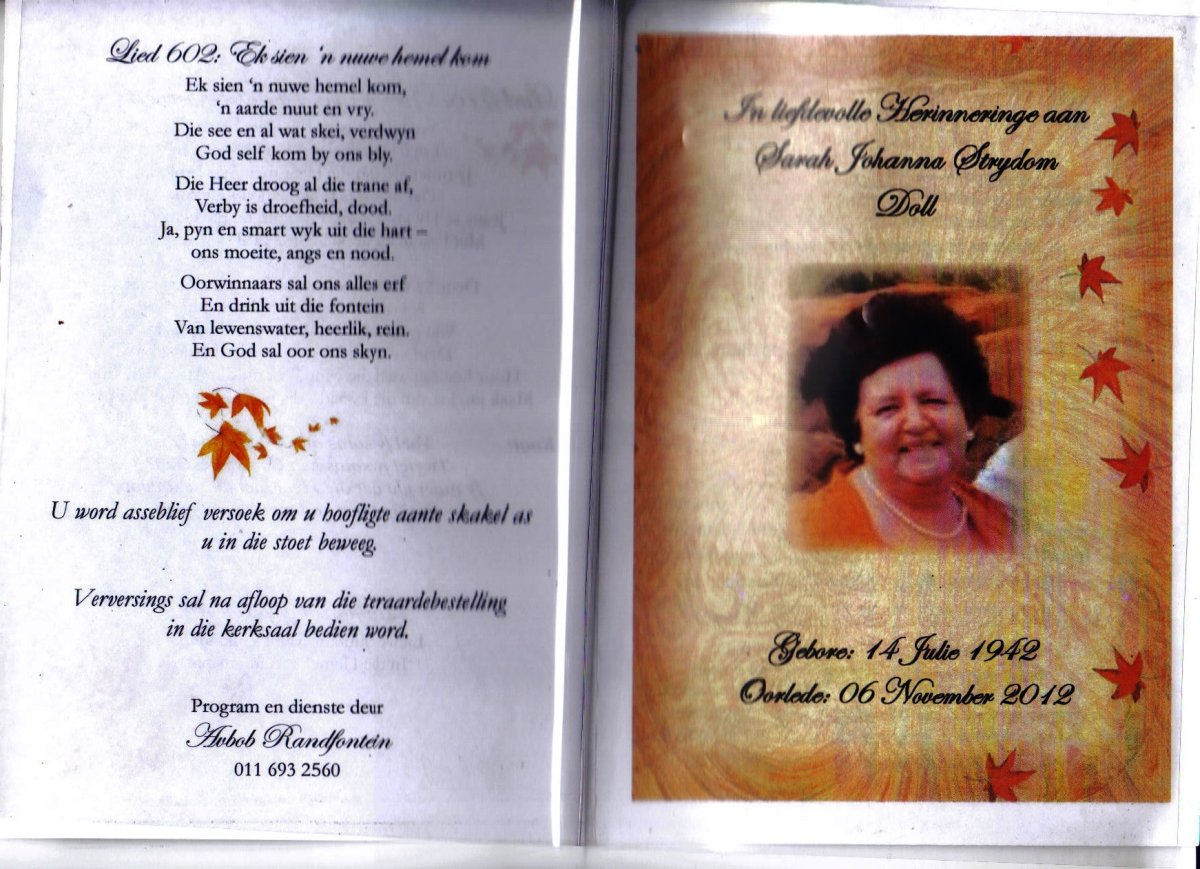 Lied 602: Ek sien 'n nuwe hemel kom
Ek sien 'n nuwe hemel kom,
'n aarde nuut en vry.
Die see en al wat skei, verdwyn
God self kom by ons bly.
Die Heer droog al die trane af,
Verby is droefheid, dood.
Ja, pyn en smart wyk uit die hart –
ons moeite, angs en nood.
Oorwinnaars sal ons alles erf
En drink uit die fontein
Van lewenswater, heerlik, rein.
En God sal oor ons skyn.
U word asseblief versoek om u hoofligte aante skakel as
u in die stoet beweeg.
Verversings sal na afloop van die teraardebestelling
in die kerksaal bedien word.
Program en dienste deur
Avbob Randfontein
011 693 2560
In liefdevolle Herinneringe aan
Sarah Johanna Strydom
Doll
Gebore: 14 Julie 1942
Oorlede: 06 November 2012